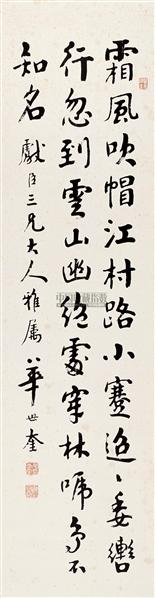 霜風吹帽江村路小蹇迢〻委轡
行忽到雲山幽絕處穿林啼鳥不
知名
獻臣三兄大人雅屬 華世奎